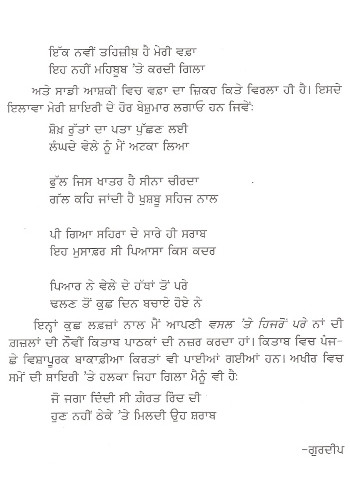 ਇੱਕ ਨਵੀਂ ਤਹਿਜ਼ੀਬ ਹੈ ਮੇਰੀ ਵਫ਼ਾ
ਇਹ ਨਹੀਂ ਮਹਿਬੂਬ 'ਤੇ ਕਰਦੀ ਗਿਲਾ
ਅਤੇ ਸਾਡੀ ਆਸ਼ਕੀ ਵਿਚ ਵਫ਼ਾ ਦਾ ਜ਼ਿਕਰ ਕਿਤੇ ਵਿਰਲਾ ਹੀ ਹੈ। ਇਸਦੇ
ਇਲਾਵਾ ਮੇਰੀ ਸ਼ਾਇਰੀ ਦੇ ਹੋਰ ਬੇਸ਼ੁਮਾਰ ਲਗਾਓ ਹਨ ਜਿਵੇਂ:
ਸ਼ੋਖ਼ ਰੁੱਤਾਂ ਦਾ ਪਤਾ ਪੁੱਛਣ ਲਈ
ਲੰਘਦੇ ਵੇਲੇ ਨੂੰ ਮੈਂ ਅਟਕਾ ਲਿਆ
ਫੁੱਲ ਜਿਸ ਖਾਤਰ ਹੈ ਸੀਨਾ ਚੀਰਦਾ
ਗੱਲ ਕਹਿ ਜਾਂਦੀ ਹੈ ਖੁਸ਼ਬੂ ਸਹਿਜ ਨਾਲ
ਪੀ ਗਿਆ ਸਹਿਰਾ ਦੇ ਸਾਰੇ ਹੀ ਸਰਾਬ
ਇਹ ਮੁਸਾਫ਼ਰ ਸੀ ਪਿਆਸਾ ਕਿਸ ਕਦਰ
ਪਿਆਰ ਨੇ ਵੇਲੇ ਦੇ ਹੱਥਾਂ ਤੋਂ ਪਰੇ
ਢਲਣ ਤੋਂ ਕੁਛ ਦਿਨ ਬਚਾਏ ਹੋਏ ਨੇ
ਇਨ੍ਹਾਂ ਕੁਛ ਲਫ਼ਜ਼ਾਂ ਨਾਲ ਮੈਂ ਆਪਣੀ ਵਸਲ 'ਤੇ ਹਿਜਰੋਂ ਪਰੇ ਨਾਂ ਦੀ
ਗਜ਼ਲਾਂ ਦੀ ਨੌਵੀਂ ਕਿਤਾਬ ਪਾਠਕਾਂ ਦੀ ਨਜ਼ਰ ਕਰਦਾ ਹਾਂ। ਕਿਤਾਬ ਵਿਚ ਪੰਜ-
ਛੇ ਵਿਸ਼ਾਪੂਰਕ ਬਾਕਾਫ਼ੀਆ ਕਿਰਤਾਂ ਵੀ ਪਾਈਆਂ ਗਈਆਂ ਹਨ। ਅਖੀਰ ਵਿਚ
ਸਮੇਂ ਦੀ ਸ਼ਾਇਰੀ 'ਤੇ ਹਲਕਾ ਜਿਹਾ ਗਿਲਾ ਮੈਨੂੰ ਵੀ ਹੈ:
ਜੋ ਜਗਾ ਦਿੰਦੀ ਸੀ ਗ਼ੈਰਤ ਰਿੰਦ ਦੀ
ਹੁਣ ਨਹੀਂ ਠੇਕੇ 'ਤੇ ਮਿਲਦੀ ਉਹ ਸ਼ਰਾਬ
-ਗੁਰਦੀਪ